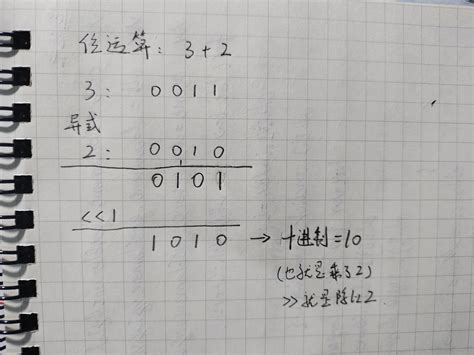 位运算: 3+2
3: 0011
异或
2: 0010
0101
<<1
1010 → 十进制=10
(也就是乘了2)
>>就是除以2